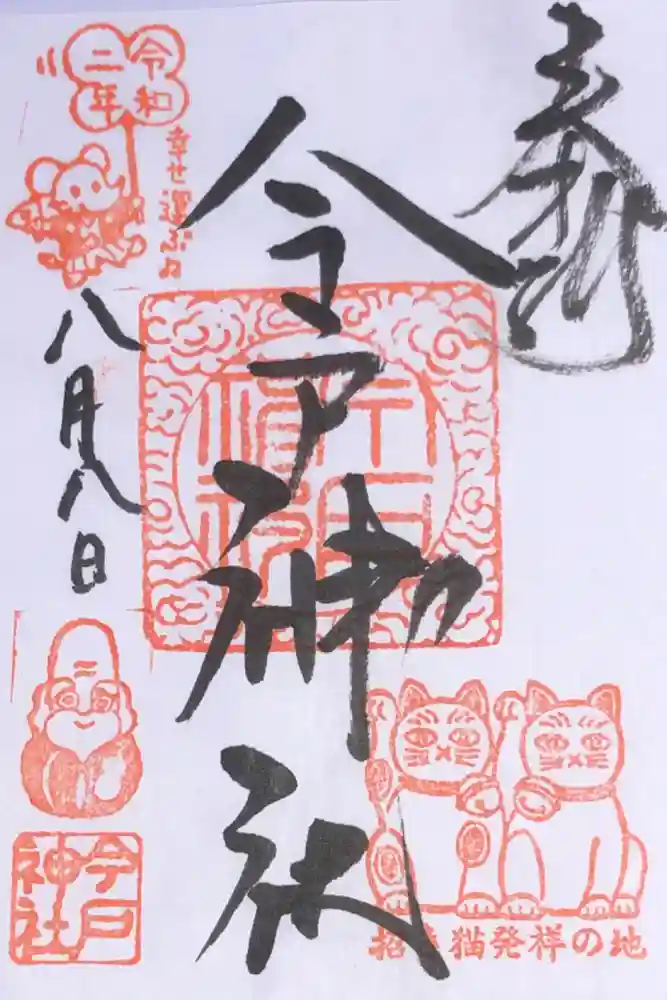 奉拝
今戸神社
令和
二年
幸せ運ぶ♫
八月八日
今戸
神社
招き猫発祥の地